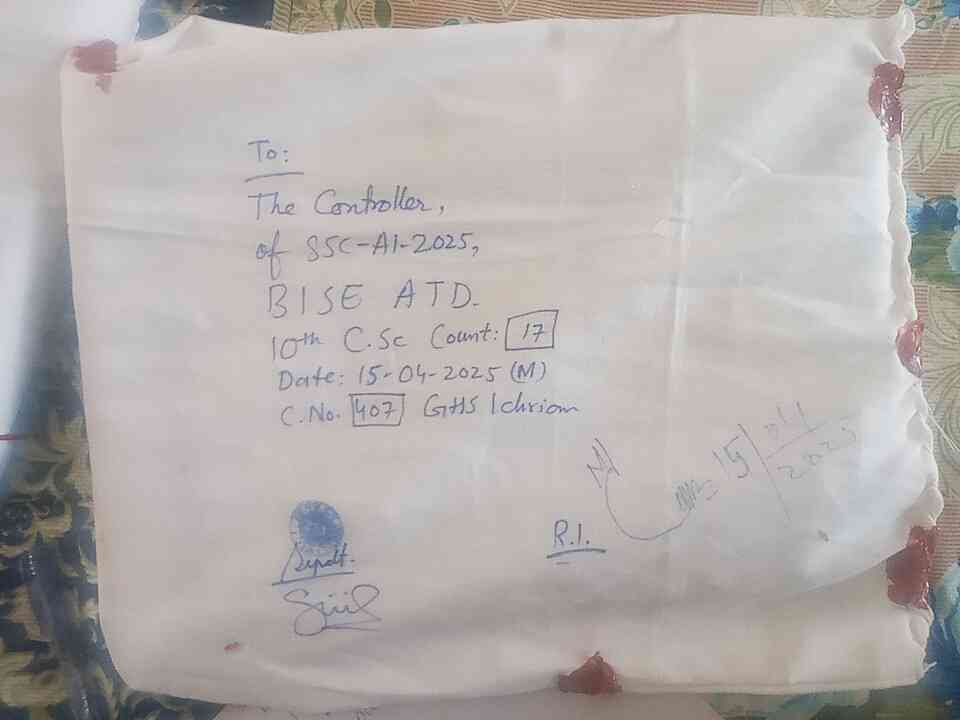 To:
The Controller,
of SSC-A1-2025,
BISE ATD.
10th C.Sc Count: 17
Date: 15-04-2025 (M)
C.No. 407 GHS Ichrian
15/04/2025
Supdt.
R.I.